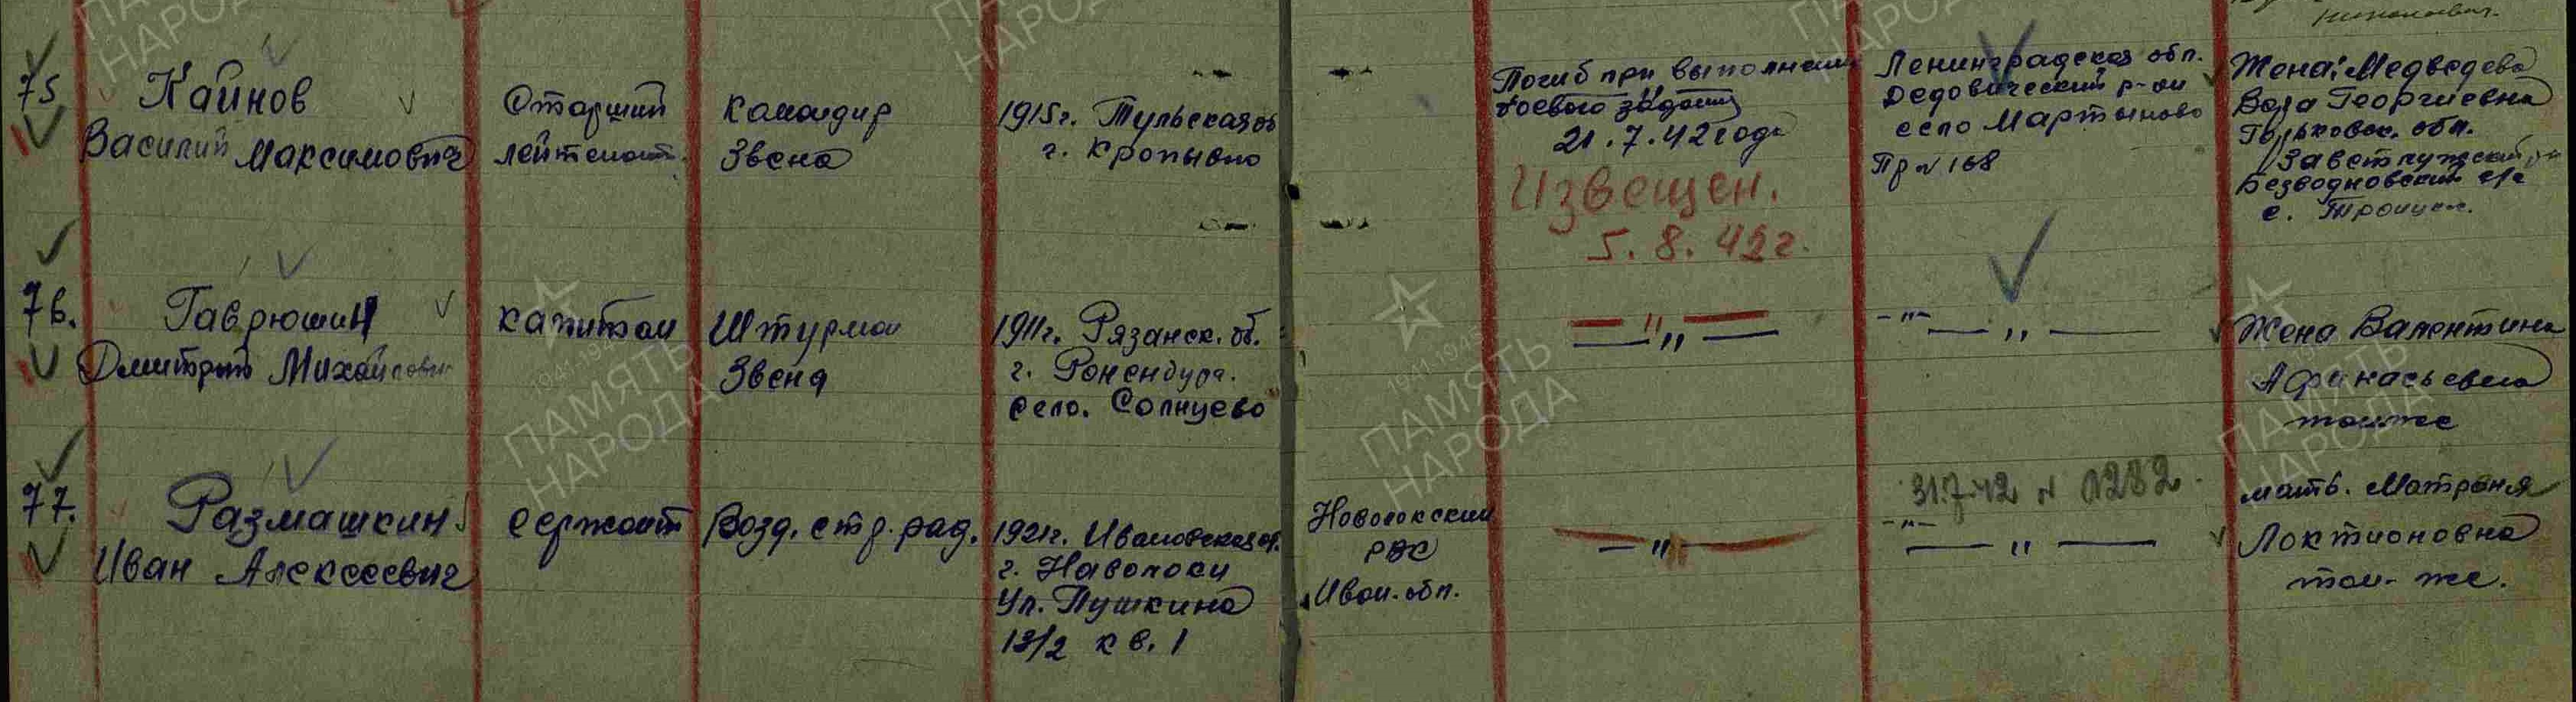 75
Каинов
Василий Максимович
Старший
лейтенант.
Командир
Звена
1915г. Тульская об
г. Кропывно
Погиб при выполнении
боевого задания
21.7.42 года
Извещен.
5.8.42г.
Ленинградская обл.
Дедовический р-он
село Мартыново
Пр № 168
Жена: Медведева
Вера Георгиевна
Горьковск. обл.
Безводновский с/с
с. Троицк.
76.
Гаврюшин
Дмитрий Михайлович
капитан
Штурман
Звена
1911г. Рязанск. об.
г.
село. Солнцево
— " —
— " —
— " —
— " —
Жена Валентина
Афанасьевна
там же
77.
Размашкин
Иван Алексеевич
сержант
Возд. стр. рад.
1921г. Ивановская об.
г. Наволоки
Ул. Пушкина
13/2 кв. 1
РВС
Иван. обл.
— " —
31.7.42 № 0282.
— " —
— " —
мать. Матрена
Локтионовна
там-же.
ПАМЯТЬ
НАРОДА
ПАМЯТЬ
НАРОДА
ПАМЯТЬ
НАРОДА